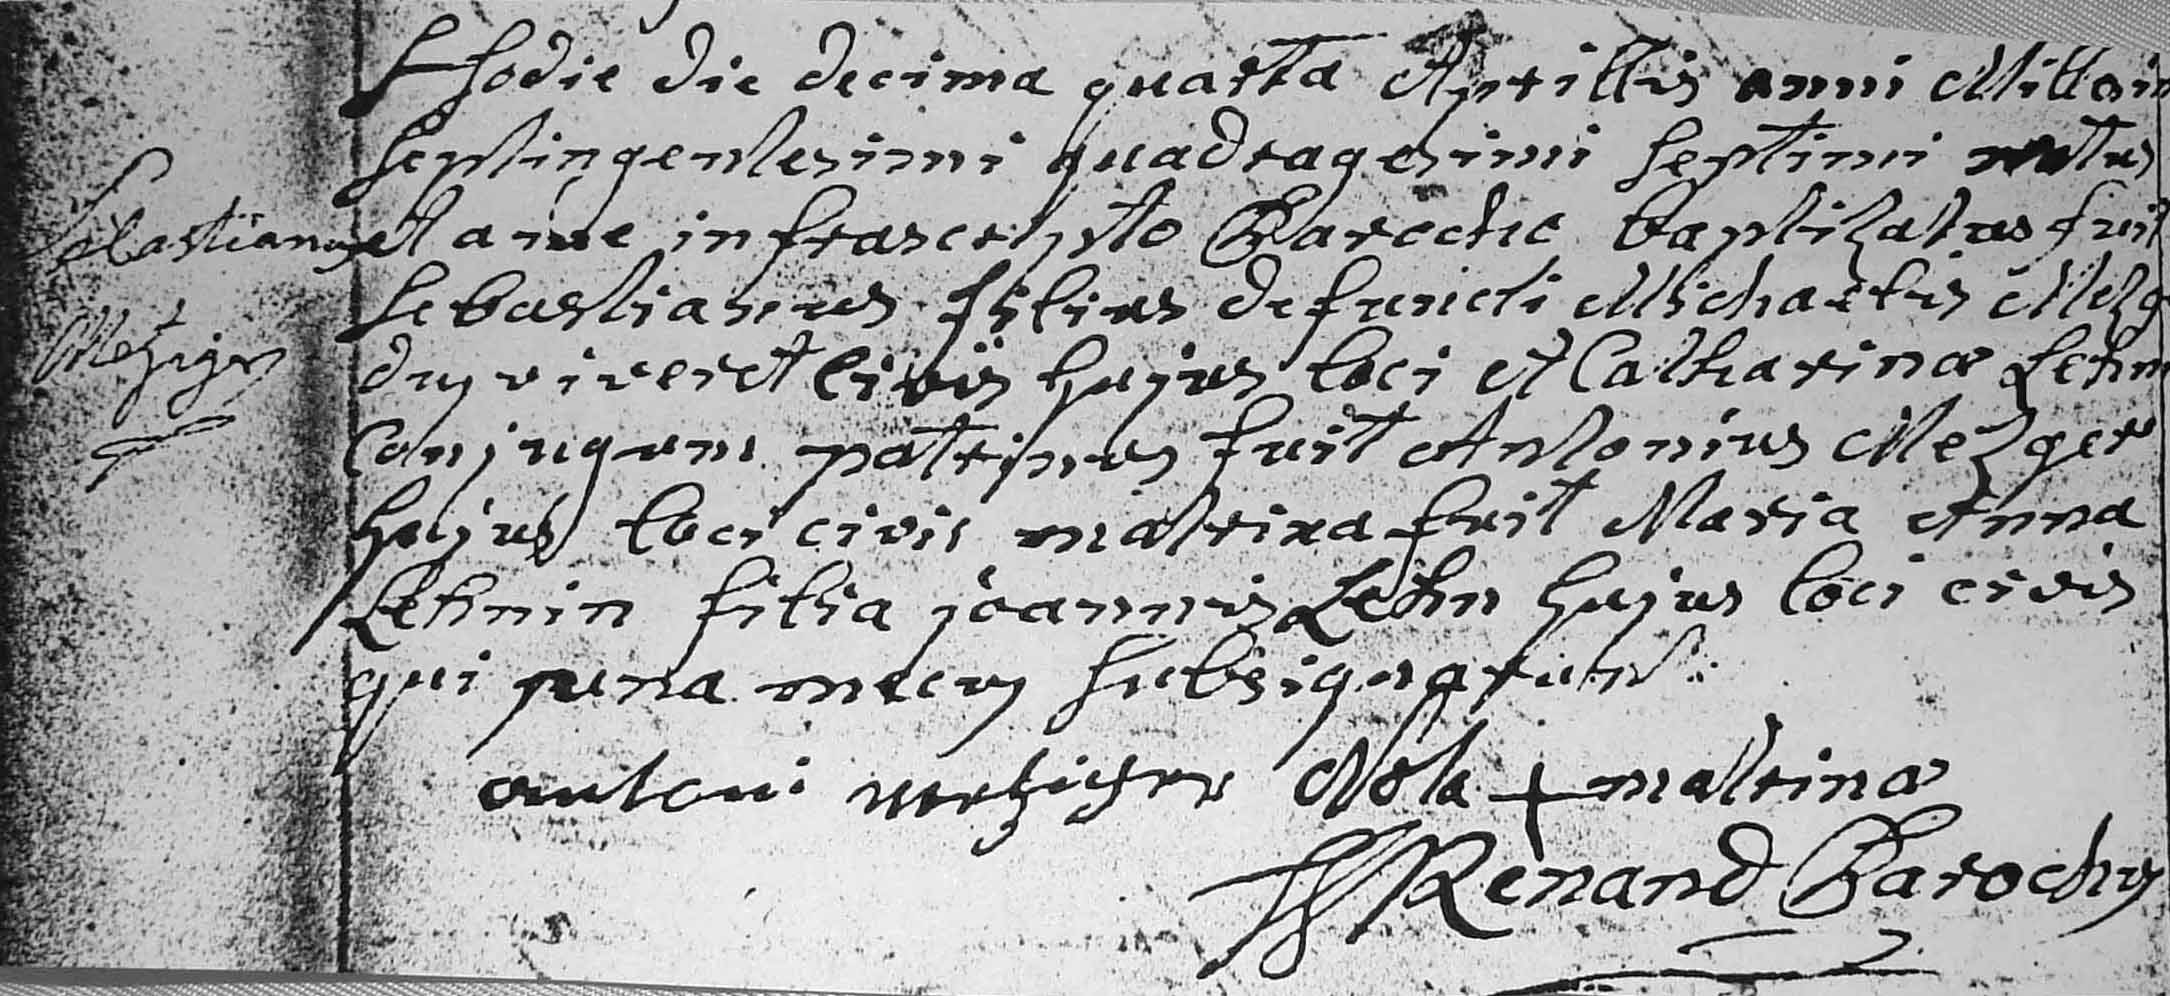 Hodie die decima quarta Aprillis anni Millesi
septingentesimi quadragesimi septimi natus
Sebastianus
et a me infrascripto Parocho baptizatus fuit
sebastianus filius defuncti Michaelis Mezg
Mezger
dum viveret civis hujus loci et Catharinæ Lehn
Conjugum patrinus fuit Antonius Mezger
hujus loci civis matrina fuit Maria Anna
Lehnin filia joannis Lehn hujus loci civis
qui una mecum subsignarunt
antoni metziger Nota + matrinæ
Renand Parochus